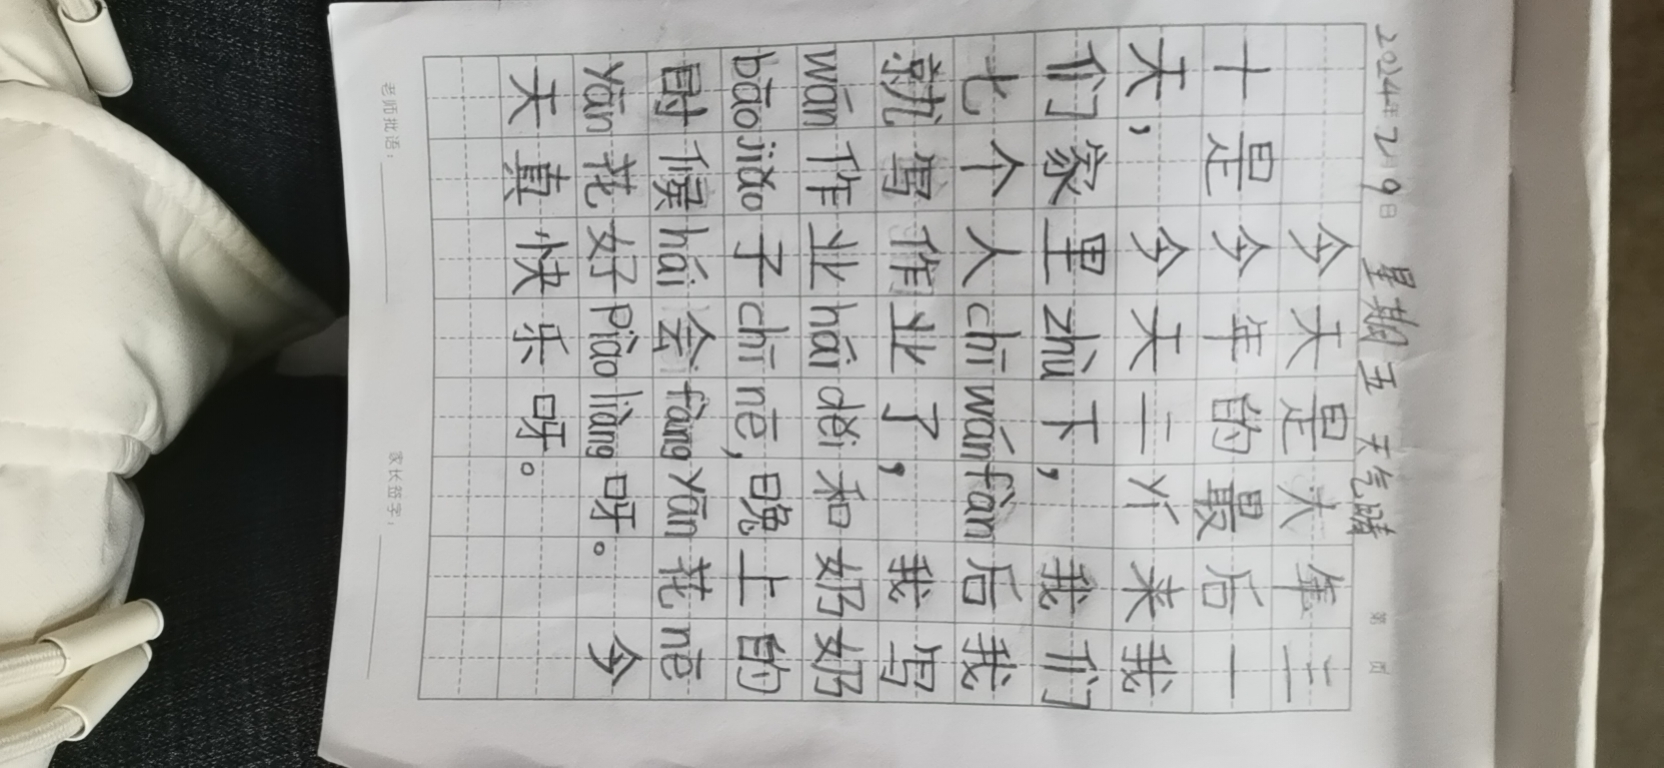 2024年2月9日 星期五 天气晴
第 页
今天是大年三
十是今年的最后一
天，今天二丫来我
们家里zhù下，我们
七个人chī wán fàn后我
就写作业了，我写
wán作业hái děi和奶奶
bāo jiǎo子chī nē，晚上的
时候hái会fàng yān花nē
yān花好Piào liàng呀。今
天真快乐呀。
老师批语： 家长签字：